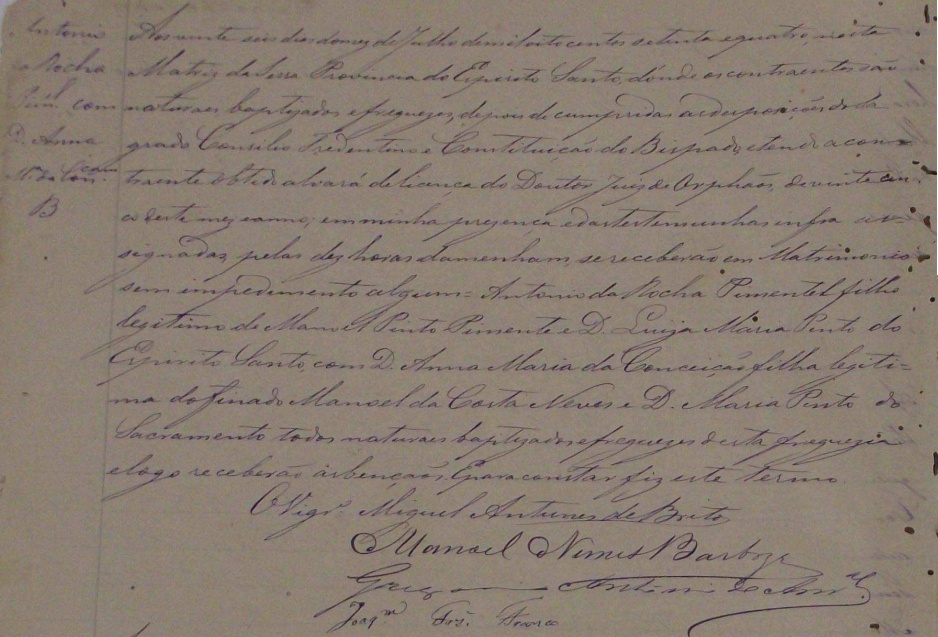 Antonio
da Rocha
Pim.l com
D. Anna
M. da Con.cam
B
Aos vinte seis dias do mez de Julho de mil oito centos setenta e quatro, nesta
Matriz da Serra Provincia do Espirito Santo, dónde os contraentes são
naturaes baptizados e freguezes, depois de cumpridas as disposições do Sa
grado Consilio Tredentino e Constituição do Bispado, e tendo a con-
traente obtido alvará de licença do Doutor Juis de Orphãos, de vinte cin-
co deste mez e anno; em minha presença e das testemunhas infra as-
signadas, pelas dez horas da menham, se receberão em Matrimonio
sem impedimento algum = Antonio da Rocha Pimentel filho
legitimo de Manoel Pinto Pimente e D. Luiza Maria Pinto do
Espirito Santo, com D. Anna Maria da Conceição filha legiti-
ma do finado Manoel da Costa Neves e D. Maria Pinto do
Sacramento todos naturaes baptizados e freguezes desta freguezia
e logo receberão as bençãos. E para constar fiz este termo.
O Vigr.o Miguel Antunes de Brito
Manoel Nunes Barboza
Antonio do
Joaq.m